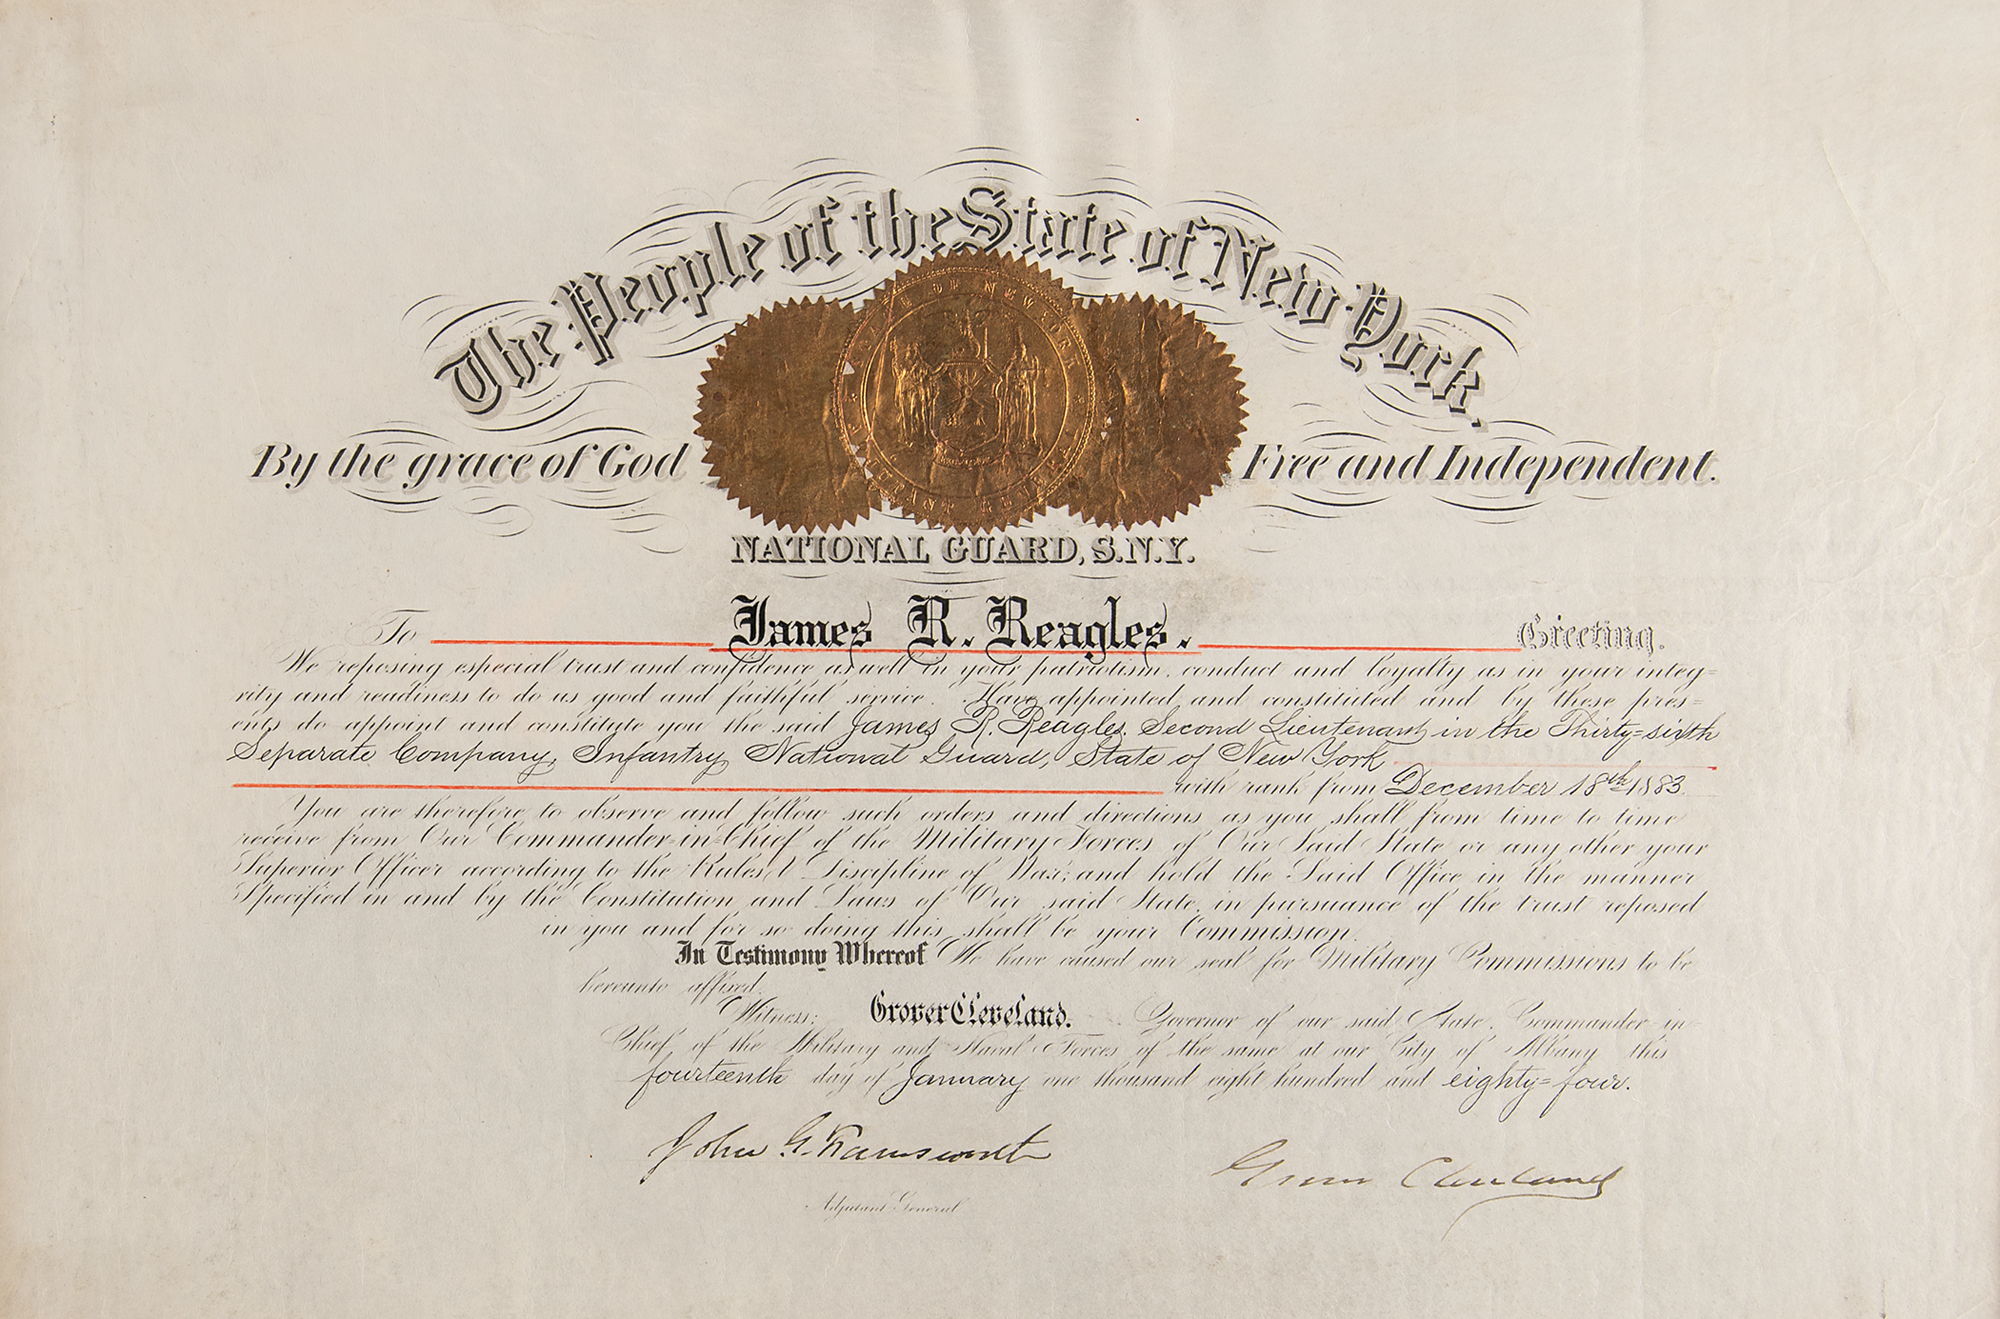 The People of the State of New York,
By the grace of God Free and Independent.
STATE OF NEW YORK
NATIONAL GUARD, S.N.Y.
To James R. Reagles. Greeting.
We reposing especial trust and confidence as well in your patriotism, conduct and loyalty as in your integ=
rity and readiness to do us good and faithful service. Have appointed and constituted and by these pres=
ents do appoint and constitute you the said James R. Reagles, Second Lieutenant in the Thirty=sixth
Separate Company, Infantry, National Guard, State of New York
with rank from December 18th 1883.
You are therefore to observe and follow such orders and directions as you shall from time to time
receive from Our Commander=in=Chief of the Military Forces of Our Said State or any other your
Superior Officer according to the Rules & Discipline of War; and hold the Said Office in the manner
Specified in and by the Constitution and Laws of Our said State, in pursuance of the trust reposed
in you and for so doing this shall be your Commission.
In Testimony Whereof We have caused our seal for Military Commissions to be
hereunto affixed.
Witness; Grover Cleveland. Governor of our said State, Commander in
Chief, of the Military and Naval Forces of the same at our City of Albany this
fourteenth day of January one thousand eight hundred and eighty=four.
John G. Farnsworth
Grover Cleveland
Adjutant General